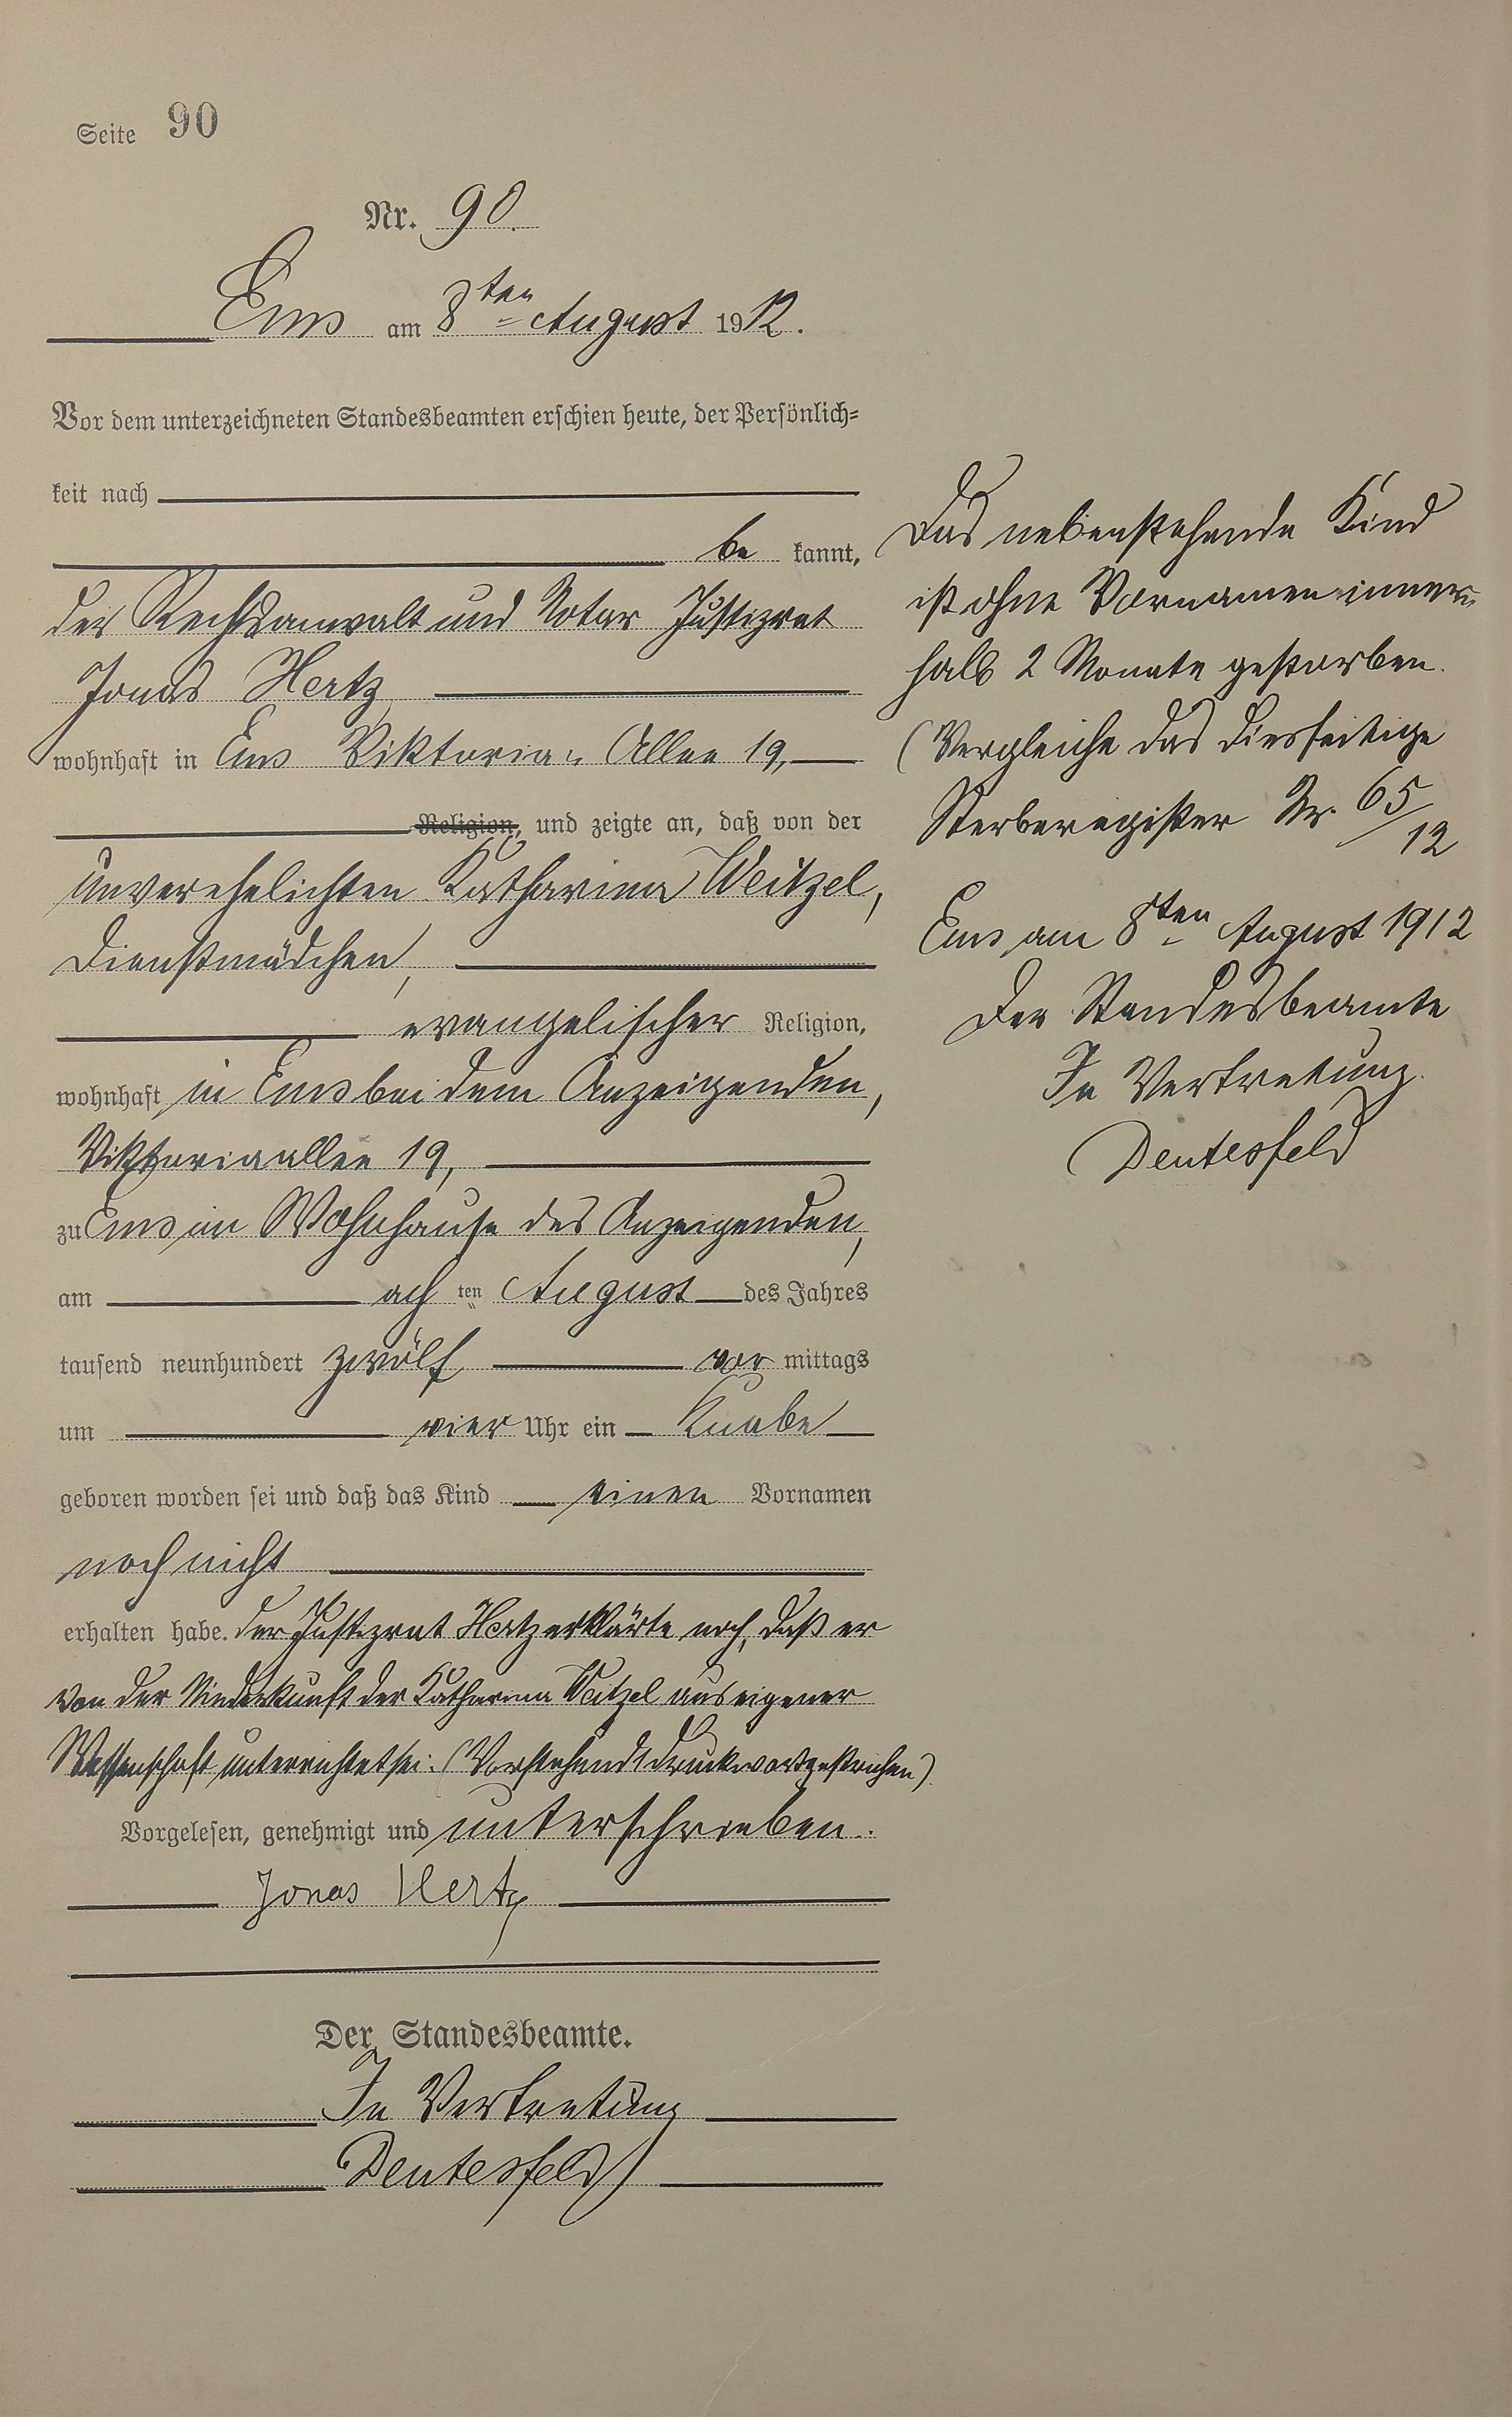 Seite 90
Nr. 90.
Ems am 8ten August 1912.
Vor dem unterzeichneten Standesbeamten erschien heute, der Persönlich-
keit nach
be kannt,
der Rechtsanwalt und Notar Justizrat
Jonas Hertz
wohnhaft in Ems Viktoria-Allee 19,
Religion, und zeigte an, daß von der
unverehelichten Katharina Weitzel,
Dienstmädchen,
evangelischer Religion,
wohnhaft in Ems bei dem Anzeigenden,
Viktoriaallee 19,
zu Ems im Wohnhause des Anzeigenden,
am achten August des Jahres
tausend neunhundert zwölf vor mittags
um vier Uhr ein Knabe
geboren worden sei und daß das Kind einen Vornamen
noch nicht
erhalten habe. Der Justizrat Hertz erklärte noch, daß er
von der Niederkunft der Katharina Weitzel aus eigener
Wissenschaft unterrichtet sei. (Vorstehend 1 Druckwort gestrichen)
Vorgelesen, genehmigt und unterschrieben.
Jonas Hertz
Der Standesbeamte.
In Vertretung
Dentesfeld
Das nebenstehende Kind
ist ohne Vornamen inner-
halb 2 Monate gestorben.
(Vergleiche das diesseitige
Sterberegister Nr. 65/12
Ems am 8ten August 1912
Der Standesbeamte
In Vertretung.
Dentesfeld